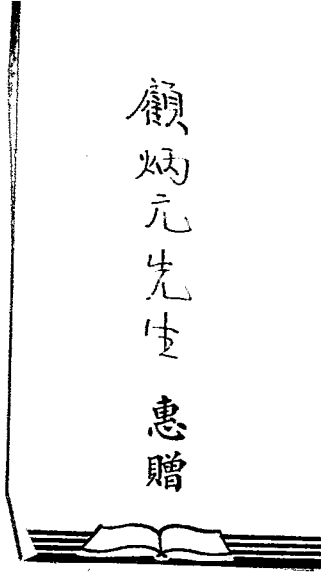 顧炳元先生 惠贈